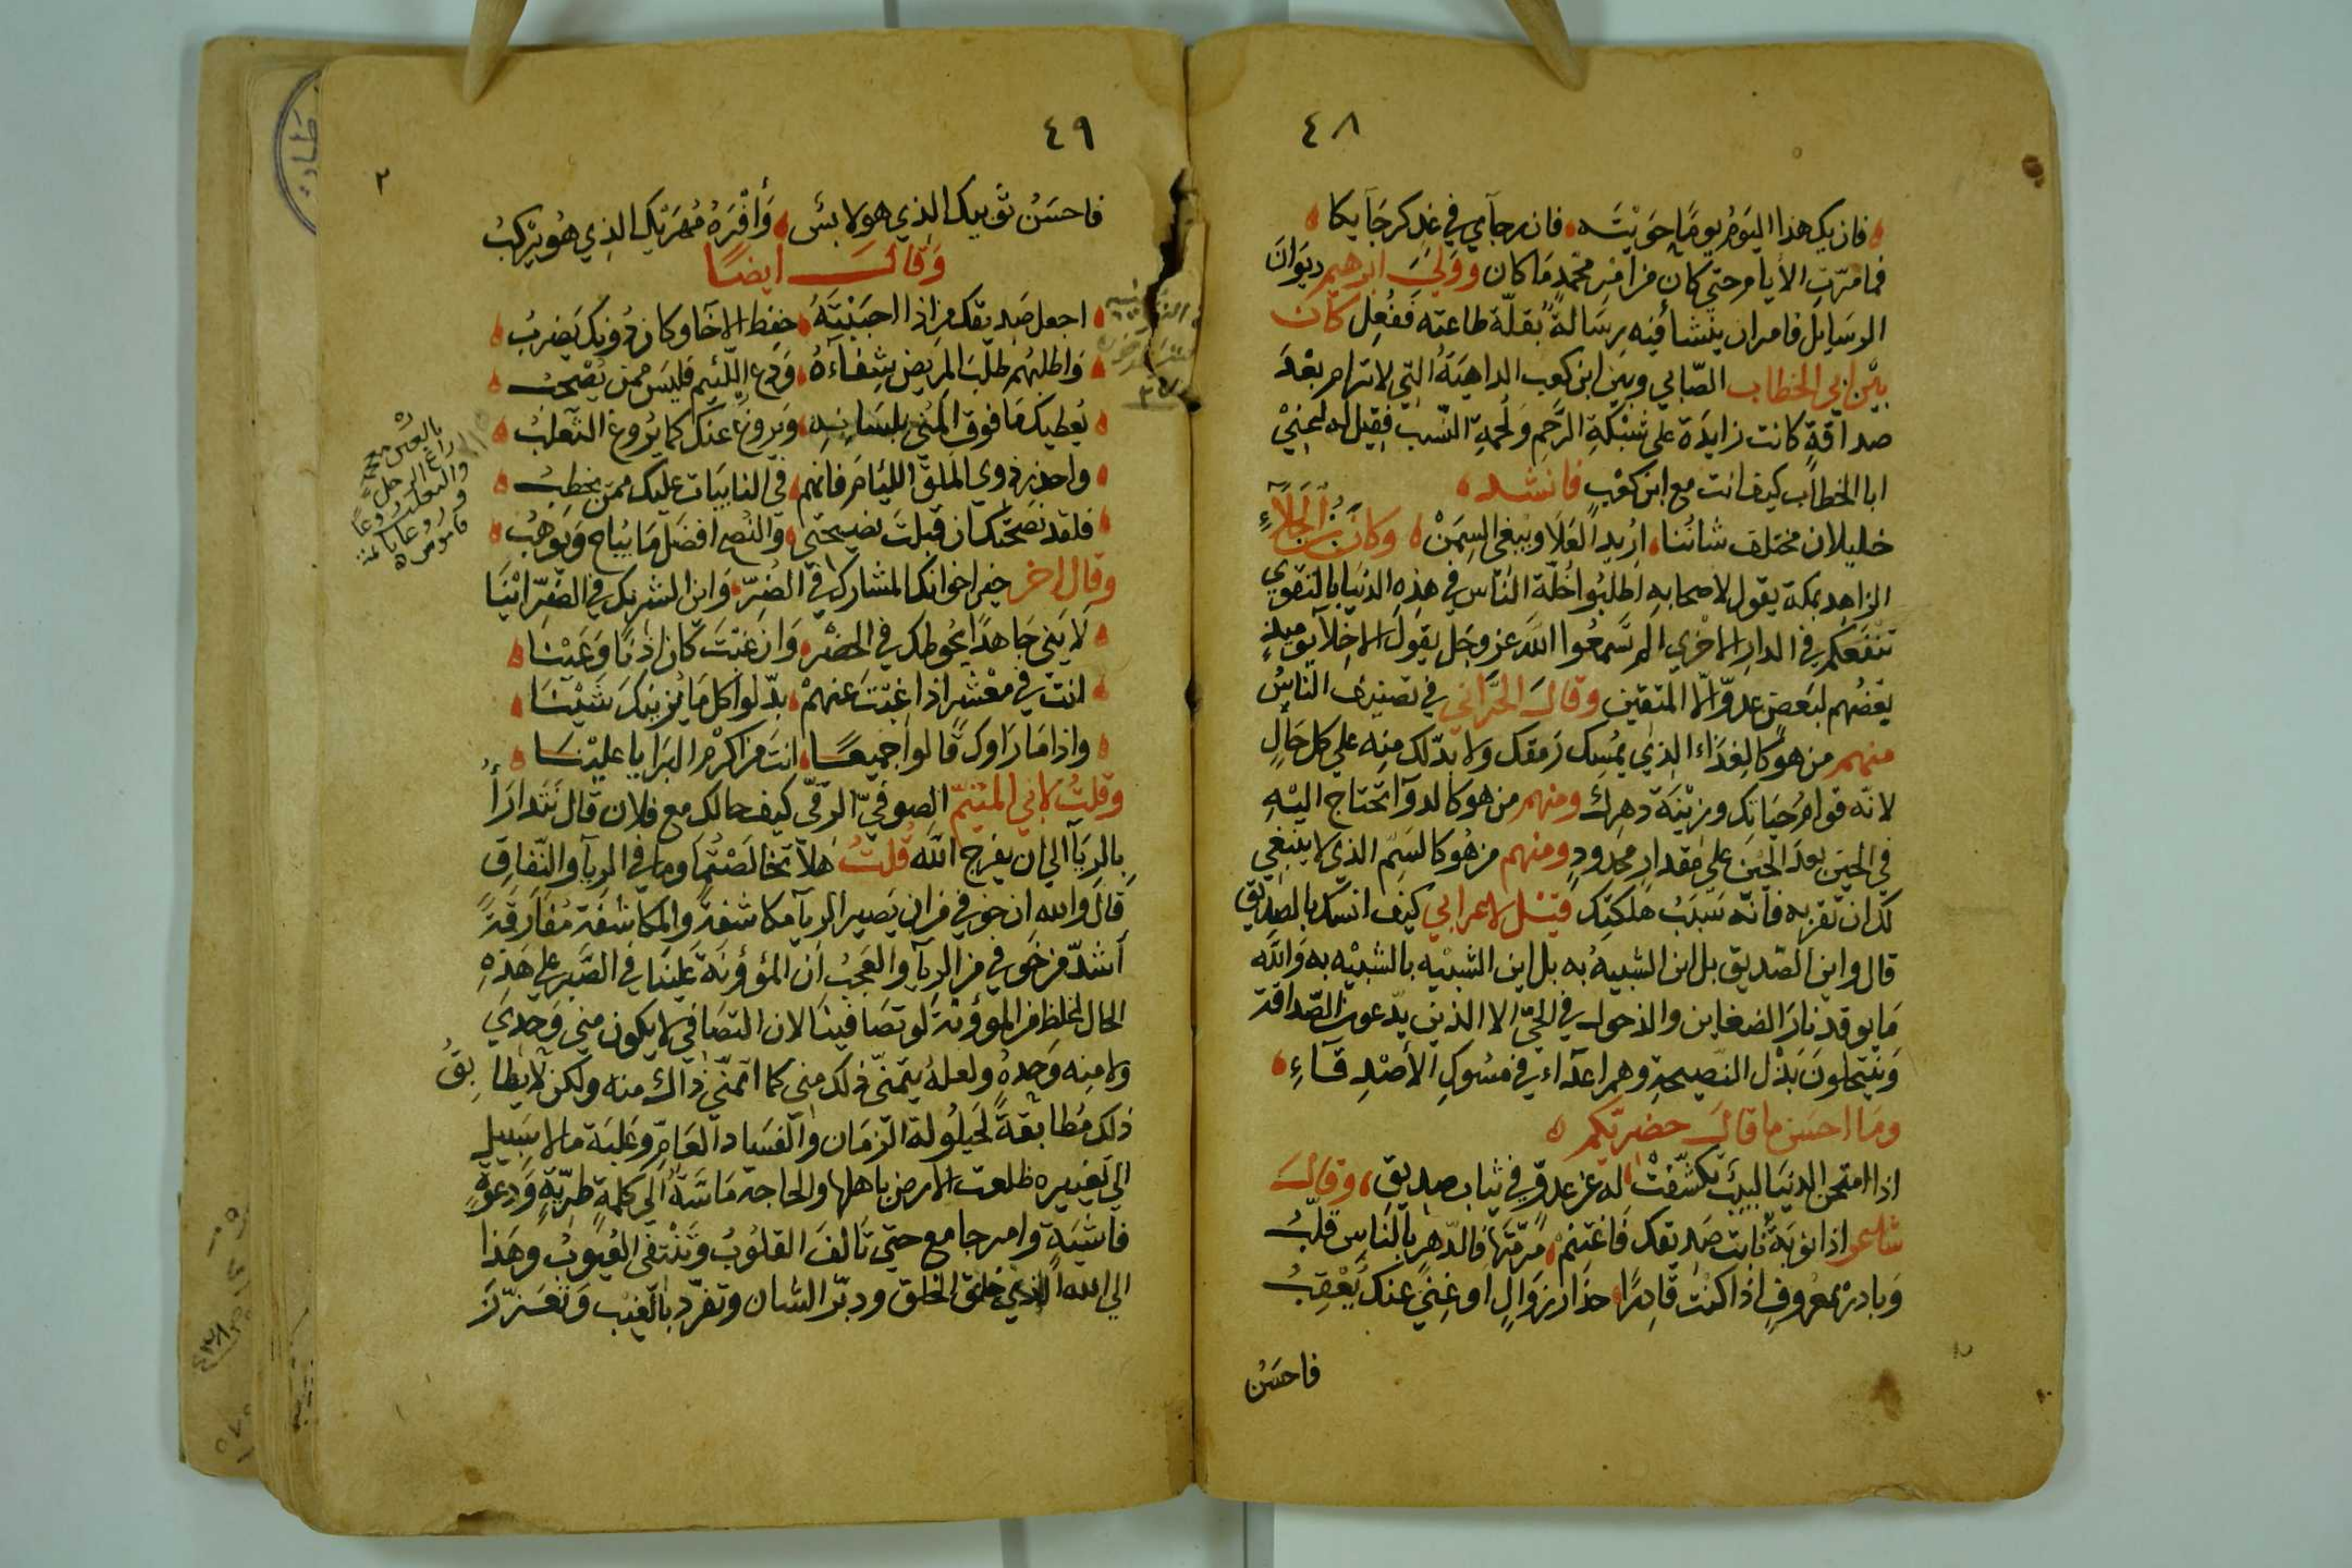 ٤٨
فان يك هذا اليوم يوما حويته فان رجآمي في غد كرجآيكا
فما مرّت الايام حتي كان من امر محمد ما كان وولي ابرهيم ديوان
الرسايل فامر ان ينشأ فيه رسالة بقلّة طاعته ففعل كان
بين ابي الخطاب الصّابي وبين ابن كعب الداهية التي لا ترام بعد
صداقة كانت زايدة على شبكة الرّحم ولحمة النّسب فقيل له اعني
ابا الخطاب كيف انت مع ابن كعب فانشد
خليلان مختلف شاننا اريد العلا ويبغى السمن وكان ابن الجلاّء
الزاهد بمكة يقول لاصحابه اطلبوا خلّة الناس في هذه الدنيا بالتقوي
تنفعكم في الدار الاخري الم تسمعوا الله عز وجل يقول الاخلآ يوميذ
بعضهم لبعض عدوّ الّا المتقين وقال الحرّاني في تصنيف الناس
منهم من هو كالغذاء الذي يمسك رمقك ولا بدّ لك منه علي كل حال
لانّه قوام حياتك وزينة دهرك ومنهم من هو كالدوآ تحتاج اليه
في الحين بعد الحين علي مقدار محدود ومنهم من هو كالسم الذي لا ينبغي
لك ان تقربه فانّه سبب هلكتك قيل لاعرابي كيف انسك بالصديق
قال واين الصديق بل اين الشبيه به بل اين الشبيه بالشبيه به والله
ما يوقد نار الضغاين والذحول في الحيّ الا الذين يدّعون الصداقة
وينتحلون بذل النصيحة وهم اعدآء في مسوك الأصدقآء
وما احسن ما قال حضريّكم
اذا امتحن الدنيا لبيب تكشّفت له عن عدوّ في ثياب صديق وقال
شاعر اذا نوبة نابت صديقك فاغتنم مرمّتها فالدهر بالناس قلّب
وبادر بمعروف اذا كنت قادرا حذار زوال او غني عنك يعقب
فاحسن
٤٩
٢
فاحسن ثوبيك الذي هو لابس وافره مهريك الذي هو يركب
وقال ايضا
اجعل صديقك من اذا احببته حفظ الاخآ وكان دونك يضرب
واطلبهم طلب المريض شفاءه ودع اللئيم فليس ممن يصحب
يعطيك ما فوق المني بلسانه ويروغ عنك كما يروغ الثعلب
واحذر ذوي الملق اللئام فانهم في النايبات عليك ممن يخطب
فلقد نصحتك ان قبلت نصيحتي والنصح افضل ما يباح ويوهب
وقال اخر خير اخوانك المشارك في الضرّ واين الشريك في الضرّ اينا
لا يني جاهدا يحوطك في الحضر وان غبت كان اذنا وعينا
انت في معشر اذا غبت عنهم بدّلوا كل ما يزينك شينا
واذا ما راوك قالوا جميعا انت من اكرم البرايا علينا
وقلت لابي المتيّم الصوفيّ الرّقّي كيف حالك مع فلان قال نتدارأ
بالريآ الي ان يفرج الله قلت هلاّ تخالصتما وما في الريآ والنّفاق
قال والله ان خوفي من ان يصير الريآ مكاشفة والمكاشفة مفارقة
اشدّ من خوفي من الريآ والعجب ان المؤونة علينا في الصّبر علي هذه
الحال اغلظ من المؤونة لو تصافينا لان التصافي لا يكون مني وحدي
ولا منه وحده ولعله يتمنّي ذلك مني كما اتمنّي ذاك منه ولكن لا يطابق
ذلك مطابقة لحيلولة الزمان والفساد العامّ وغلبة ما لا سبيل
الي تغييره ظلعت الارض باهلها والحاجة ماسّة الي كلمة طريّة ودعوة
فاشية وامر جامع حتي تالف القلوب وتنتفى العيوب وهذا
الي الله الذي خلق الخلق ودبّر الشان وتفرّد بالغيب وتعزّز
راغ الرجل
والثعلب روغا
وروغانا
قاموس